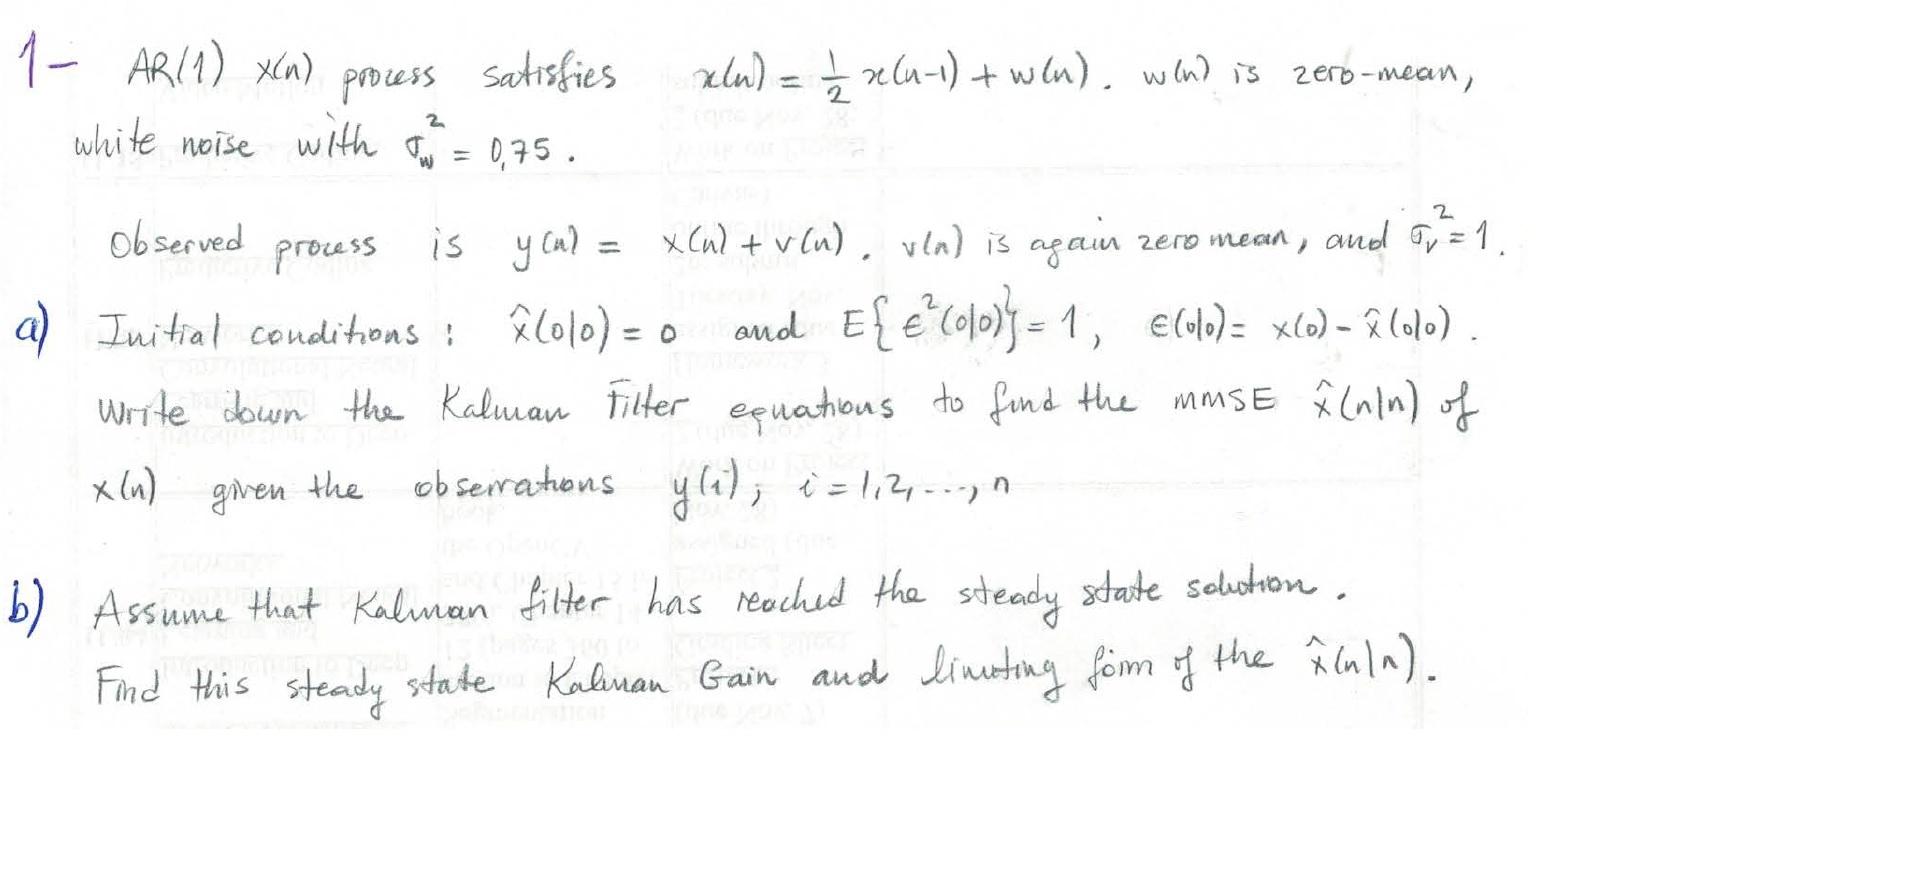 1- AR(1) x(n) process satisfies x(n) = 1/2 x(n-1) + w(n). w(n) is zero-mean,
white noise with σ_w^2 = 0,75.
Observed process is y(n) = x(n) + v(n). v(n) is again zero mean, and σ_v^2 = 1.
a) Initial conditions: x̂(0|0) = 0 and E{ϵ^2(0|0)} = 1, ϵ(0|0) = x(0) - x̂(0|0).
Write down the Kalman Filter equations to find the MMSE x̂(n|n) of
x(n) given the observations y(i); i = 1,2,...,n
b) Assume that Kalman filter has reached the steady state solution.
Find this steady state Kalman Gain and limiting form of the x̂(n|n).